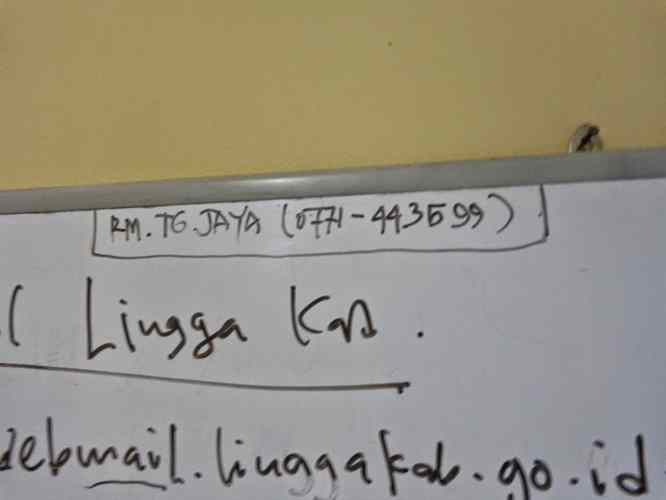 RM. TG. JAYA (0771-443599)
Lingga Kab.
webmail.linggakab.go.id